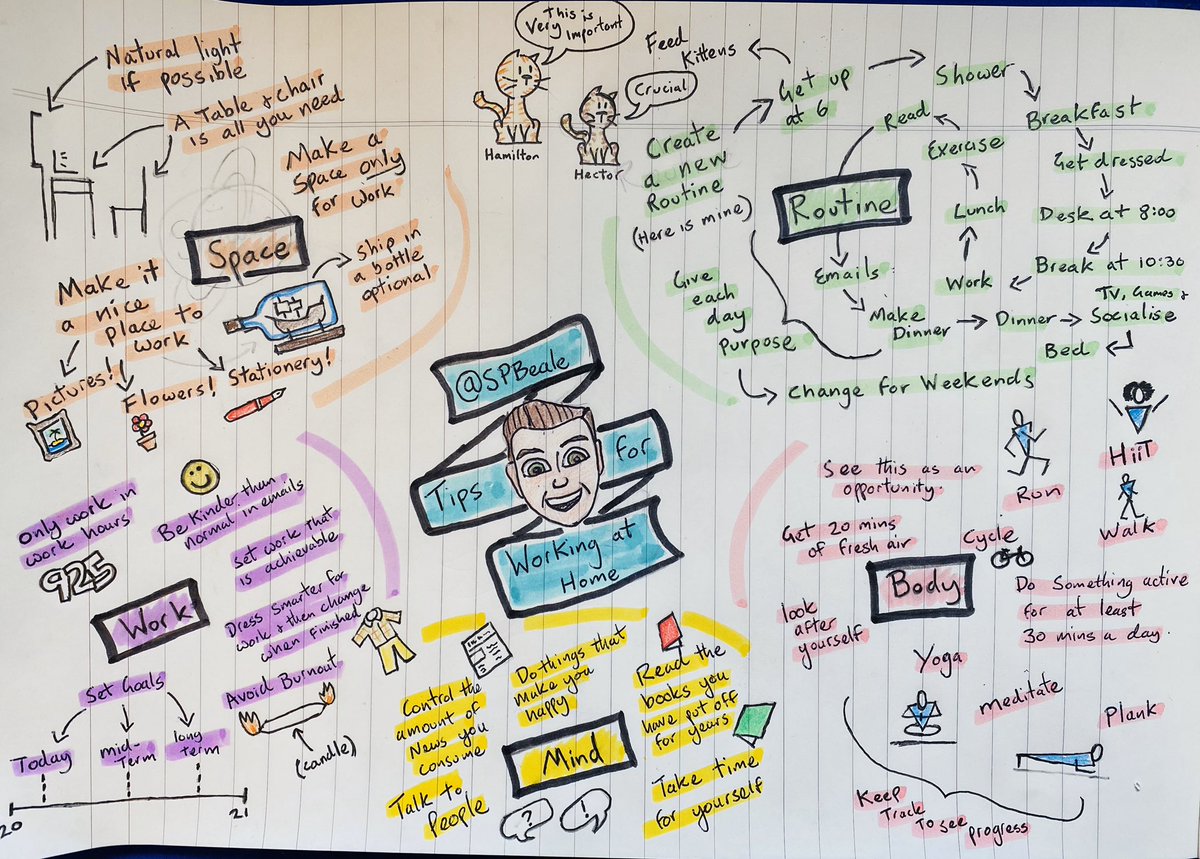 Natural light
if possible
A Table & chair
is all you need
Make a
Space only
for work
Space
Ship in
a bottle
optional
Make it
a nice
place to
work
Pictures!
Flowers!
Stationery!
This is
Very important
Hamilton
Crucial
Hector
Feed
Kittens
Get up
at 6
Shower
Breakfast
Get dressed
Desk at 8:00
Break at 10:30
Work
Lunch
Exercise
Read
Routine
Emails
Make
Dinner
Dinner
TV, Games &
Socialise
Bed
Create
a new
Routine
(Here is mine)
Give
each
day
purpose
Change for Weekends
@SPBeale
Tips
for
Working at
Home
only work in
work hours
925
Be Kinder than
normal in emails
set work that
is achievable
Dress smarter for
work & then change
when finished
Work
Avoid Burnout
(candle)
Set Goals
Today
mid-
term
long
term
20
21
Control the
amount of
News you
consume
Do things that
make you
happy
Read the
books you
have put off
for years
Mind
Talk to
People
?
!
Take time
for yourself
See this as an
opportunity.
Get 20 mins
of fresh air
look
after
yourself
Body
Run
HiiT
Cycle
Walk
Do Something active
for at least
30 mins a day.
Yoga
meditate
Plank
Keep
Track
To see
progress